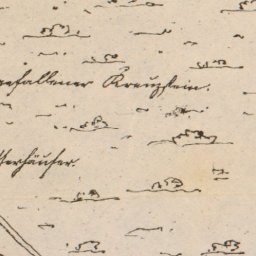 gefallener Kreuzstein.
terhäuser.